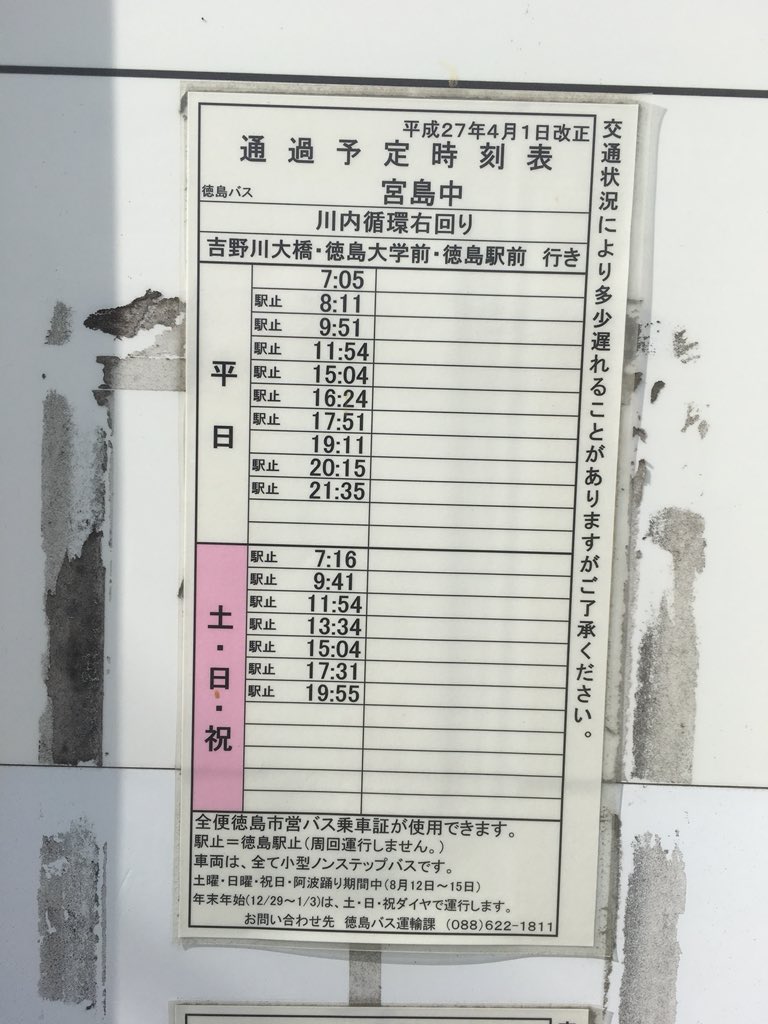 平成27年4月1日改正
通過予定時刻表
徳島バス 宮島中
川内循環右回り
吉野川大橋・徳島大学前・徳島駅前 行き
平日
7:05
駅止 8:11
駅止 9:51
駅止 11:54
駅止 15:04
駅止 16:24
駅止 17:51
19:11
駅止 20:15
駅止 21:35
土・日・祝
駅止 7:16
駅止 9:41
駅止 11:54
駅止 13:34
駅止 15:04
駅止 17:31
駅止 19:55
全便徳島市営バス乗車証が使用できます。
駅止＝徳島駅止(周回運行しません。)
車両は、全て小型ノンステップバスです。
土曜・日曜・祝日・阿波踊り期間中(8月12日～15日)
年末年始(12/29～1/3)は、土・日・祝ダイヤで運行します。
お問い合わせ先 徳島バス運輸課 (088)622-1811
交通状況により多少遅れることがありますがご了承ください。